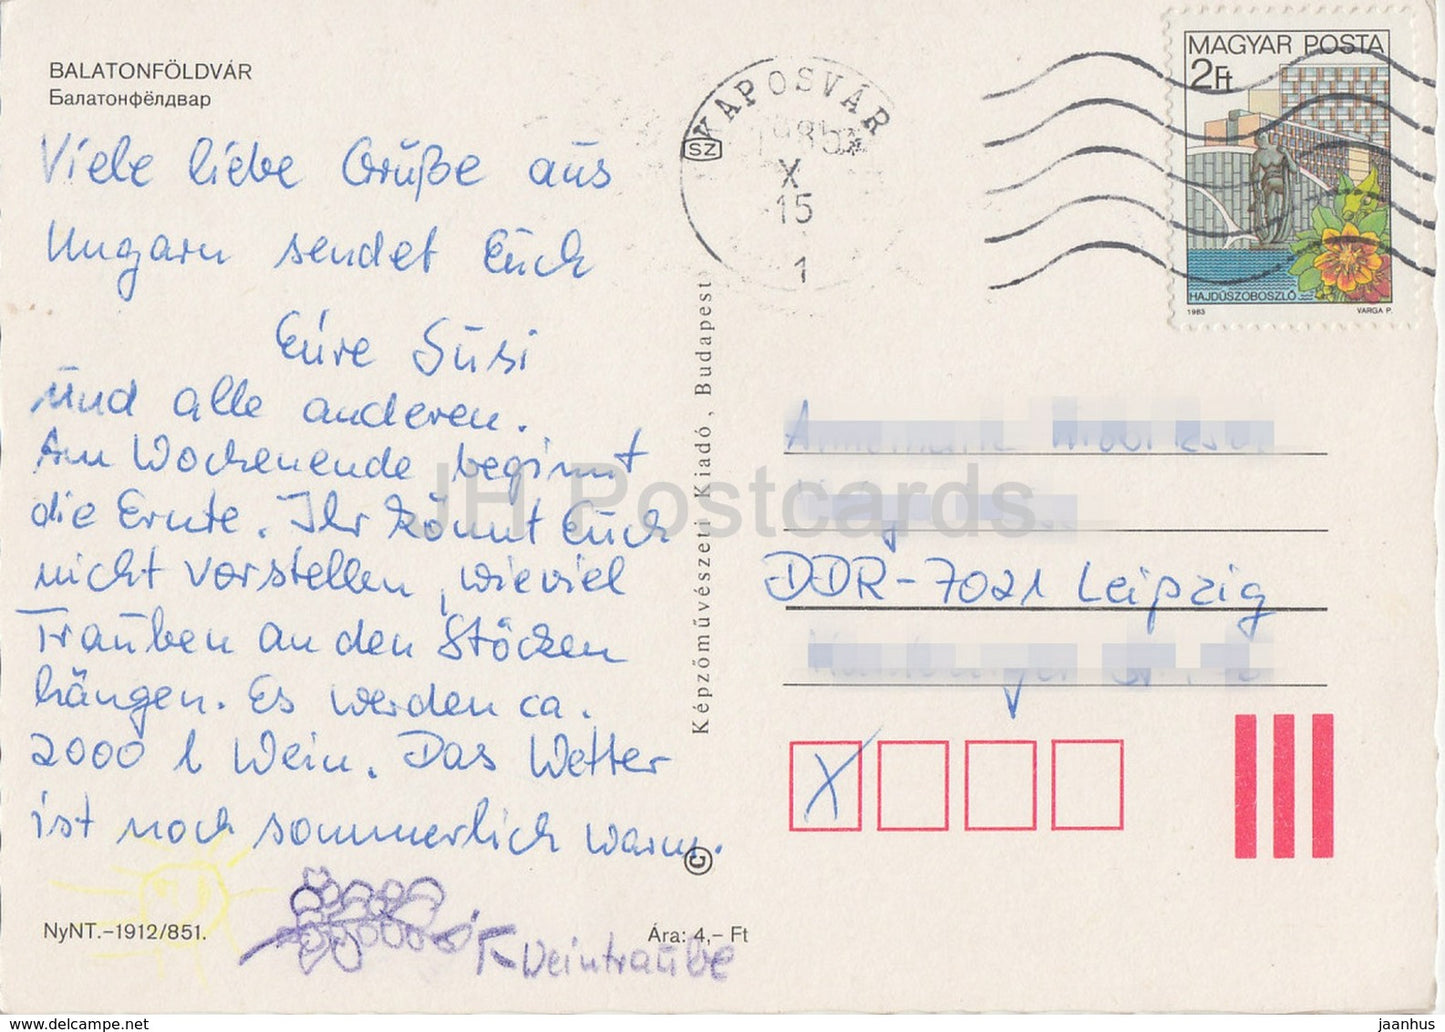 BALATONFÖLDVÁR
Балатонфёлдвар
Viele liebe Grüße aus
Ungarn sendet Euch
Eure Susi
und alle anderen.
Am Wochenende beginnt
die Ernte. Ihr könnt Euch
nicht vorstellen, wieviel
Trauben an den Stöcken
hängen. Es werden ca.
2000 l Wein. Das Wetter
ist noch sommerlich warm.
Weintraube
NyNT.-1912/851.
Ára: 4,- Ft
Képzőművészeti Kiadó, Budapest
KAPOSVÁR
SZ
1985
X
15
1
MAGYAR POSTA
2Ft
HAJDÚSZOBOSZLÓ
1983 VARGA P.
DDR-7021 Leipzig
X
JH Postcards
www.delcampe.net
jaanhus